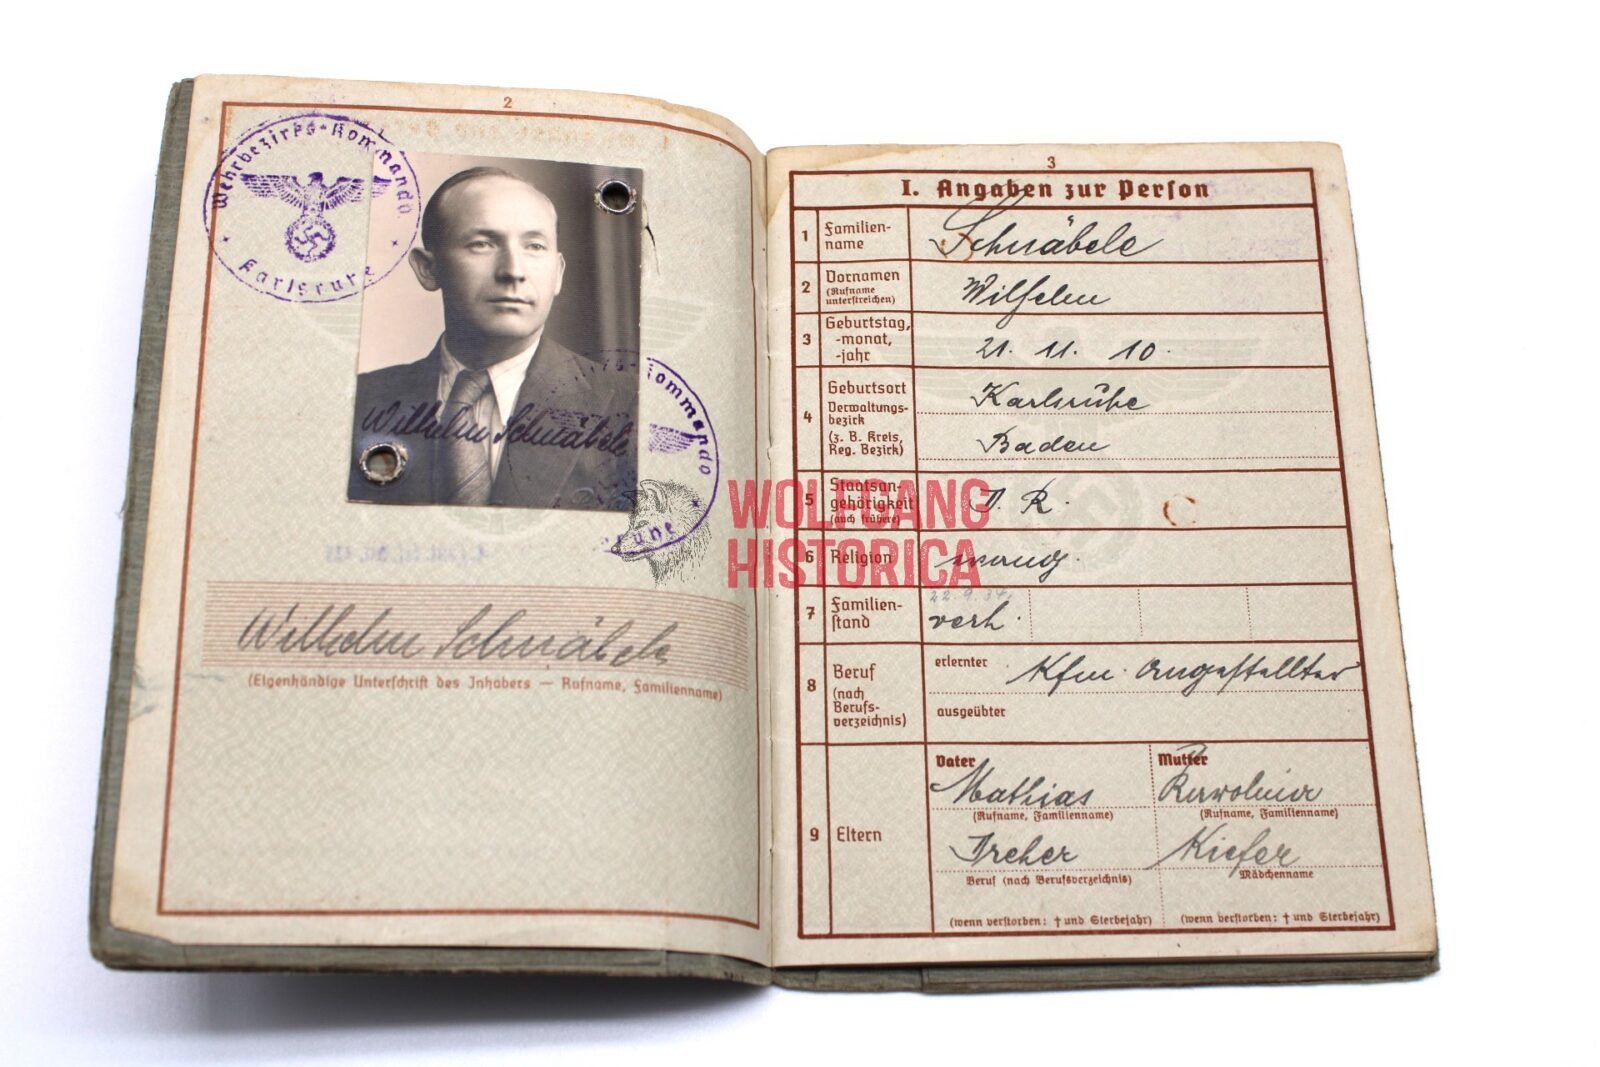 2
Wehrbezirks-Kommando
Karlsruhe
Wilhelm Schnäbele
Kommando
ruhe
Wilhelm Schnäbele
(Eigenhändige Unterschrift des Inhabers — Rufname, Familienname)
WOLFGANG
HISTORICA
3
I. Angaben zur Person
1 Familien-
name
Schnäbele
2 Vornamen
(Rufname
unterstreichen)
Wilhelm
3 Geburtstag,
-monat,
-jahr
21. 11. 10.
4 Geburtsort
Verwaltungs-
bezirk
(z. B. Kreis,
Reg. Bezirk)
Karlsruhe
Baden
5 Staatsan-
gehörigkeit
(auch frühere)
D. R.
6 Religion
evang.
7 Familien-
stand
22.9.34.
verh.
8 Beruf
(nach
Berufs-
verzeichnis)
erlernter Kfm. Angestellter
ausgeübter
9 Eltern
Vater
Mathias
(Rufname, Familienname)
Dreher
Beruf (nach Berufsverzeichnis)
(wenn verstorben: † und Sterbejahr)
Mutter
Karolina
(Rufname, Familienname)
Kiefer
Mädchenname
(wenn verstorben: † und Sterbejahr)